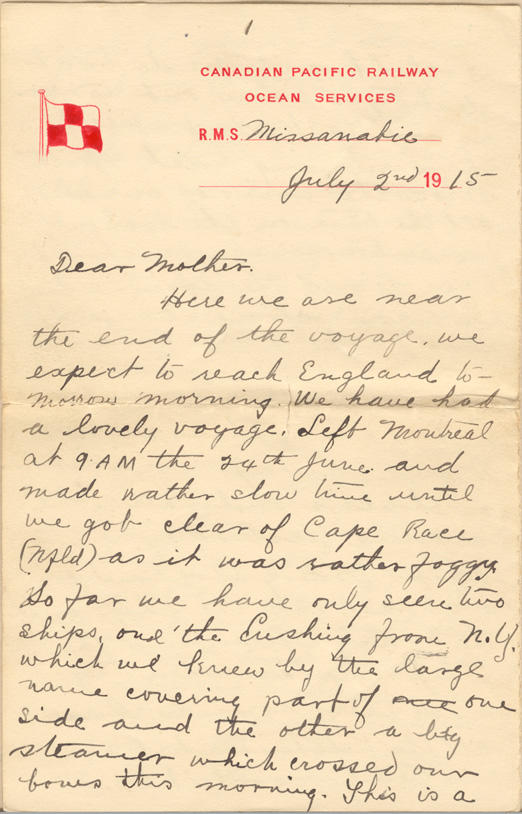 1
CANADIAN PACIFIC RAILWAY
OCEAN SERVICES
R.M.S. Missanabie
July 2nd 1915
Dear Mother.
Here we are near
the end of the voyage, we
expect to reach England to-
morrow morning. We have had
a lovely voyage. Left Montreal
at 9 AM the 24th June and
made rather slow time until
we got clear of Cape Race
(Nfld) as it was rather foggy.
So far we have only seen two
ships, one the Cushing from N.Y.
which we knew by the large
name covering part of one
side and the other a big
steamer which crossed our
bows this morning. This is a